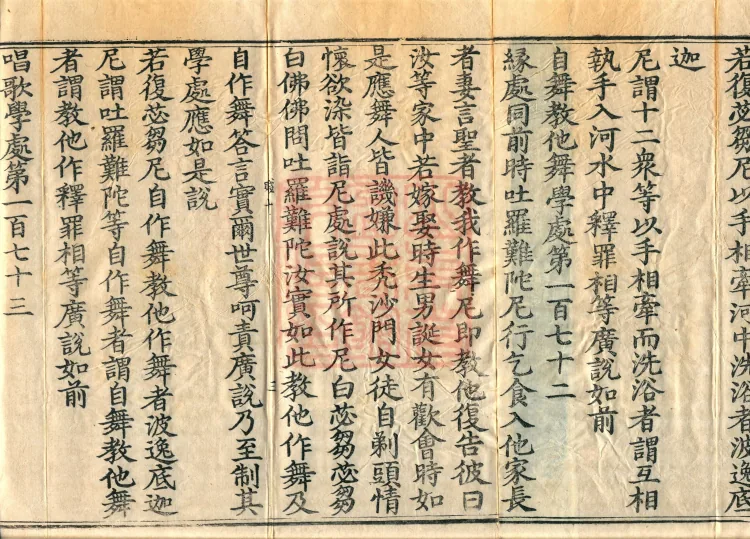 若復苾芻尼以手相牽河中洗浴者波逸底
迦
尼謂十二衆等以手相牽而洗浴者謂互相
執手入河水中釋罪相等廣說如前
自舞教他舞學處第一百七十二
緣處同前時吐羅難陀尼行乞食入他家長
者妻言聖者教我作舞尼即教他復告彼曰
汝等家中若嫁娶時生男誕女有歡會時如
是應舞人皆譏嫌此禿沙門女徒自剃頭情
懷欲染皆詣尼處說其所作尼白苾芻苾芻
白佛佛問吐羅難陀汝實如此教他作舞及
自作舞答言實爾世尊呵責廣說乃至制其
學處應如是說
若復苾芻尼自作舞教他作舞者波逸底迦
尼謂吐羅難陀等自作舞者謂自舞教他舞
者謂教他作釋罪相等廣說如前
唱歌學處第一百七十三